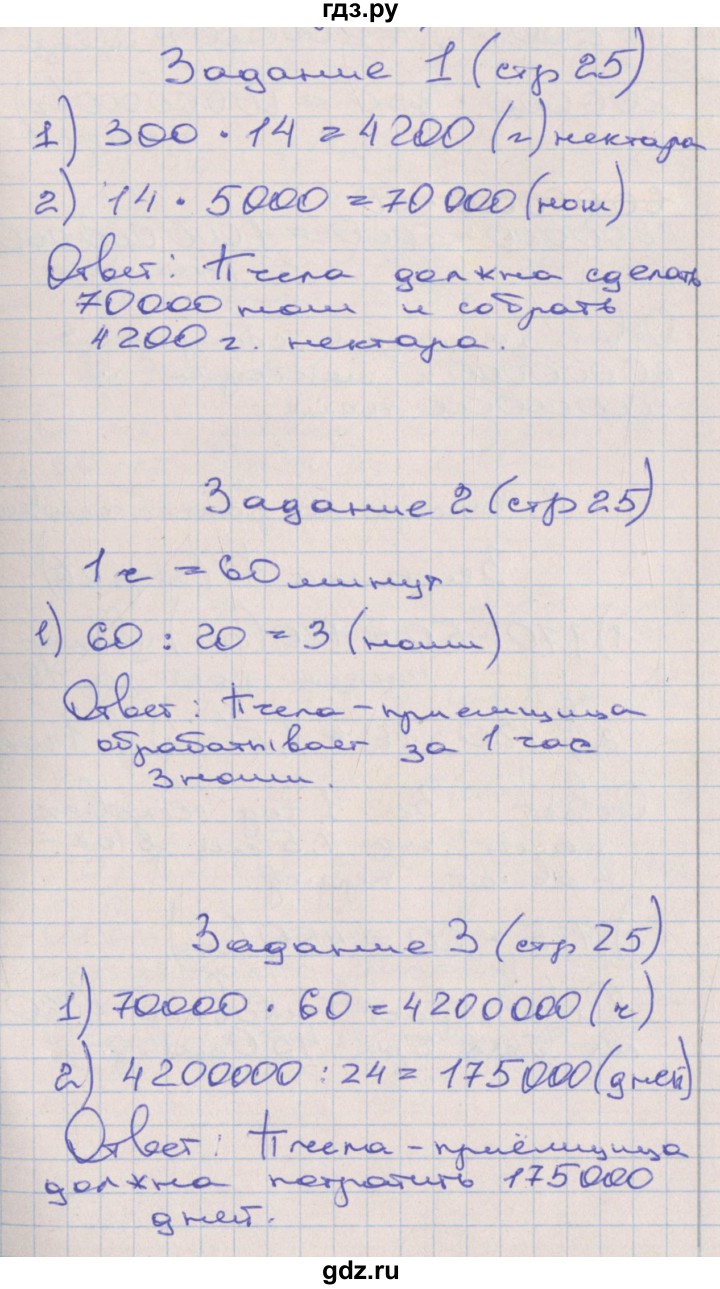 гдз.ру
Задание 1 (стр 25)
1) 300 · 14 = 4200 (г) нектара
2) 14 · 5000 = 70 000 (нош)
Ответ: Пчела должна сделать
70000 нош и собрать
4200 г. нектара.
Задание 2 (стр 25)
1 ч = 60 минут
1) 60 : 20 = 3 (ноши)
Ответ: Пчела-приемщица
обрабатывает за 1 час
3 ноши.
Задание 3 (стр 25)
1) 70000 · 60 = 4200000 (ч)
2) 4200000 : 24 = 175000 (дней)
Ответ: Пчела-приёмщица
должна потратить 175000
дней.
gdz.ru